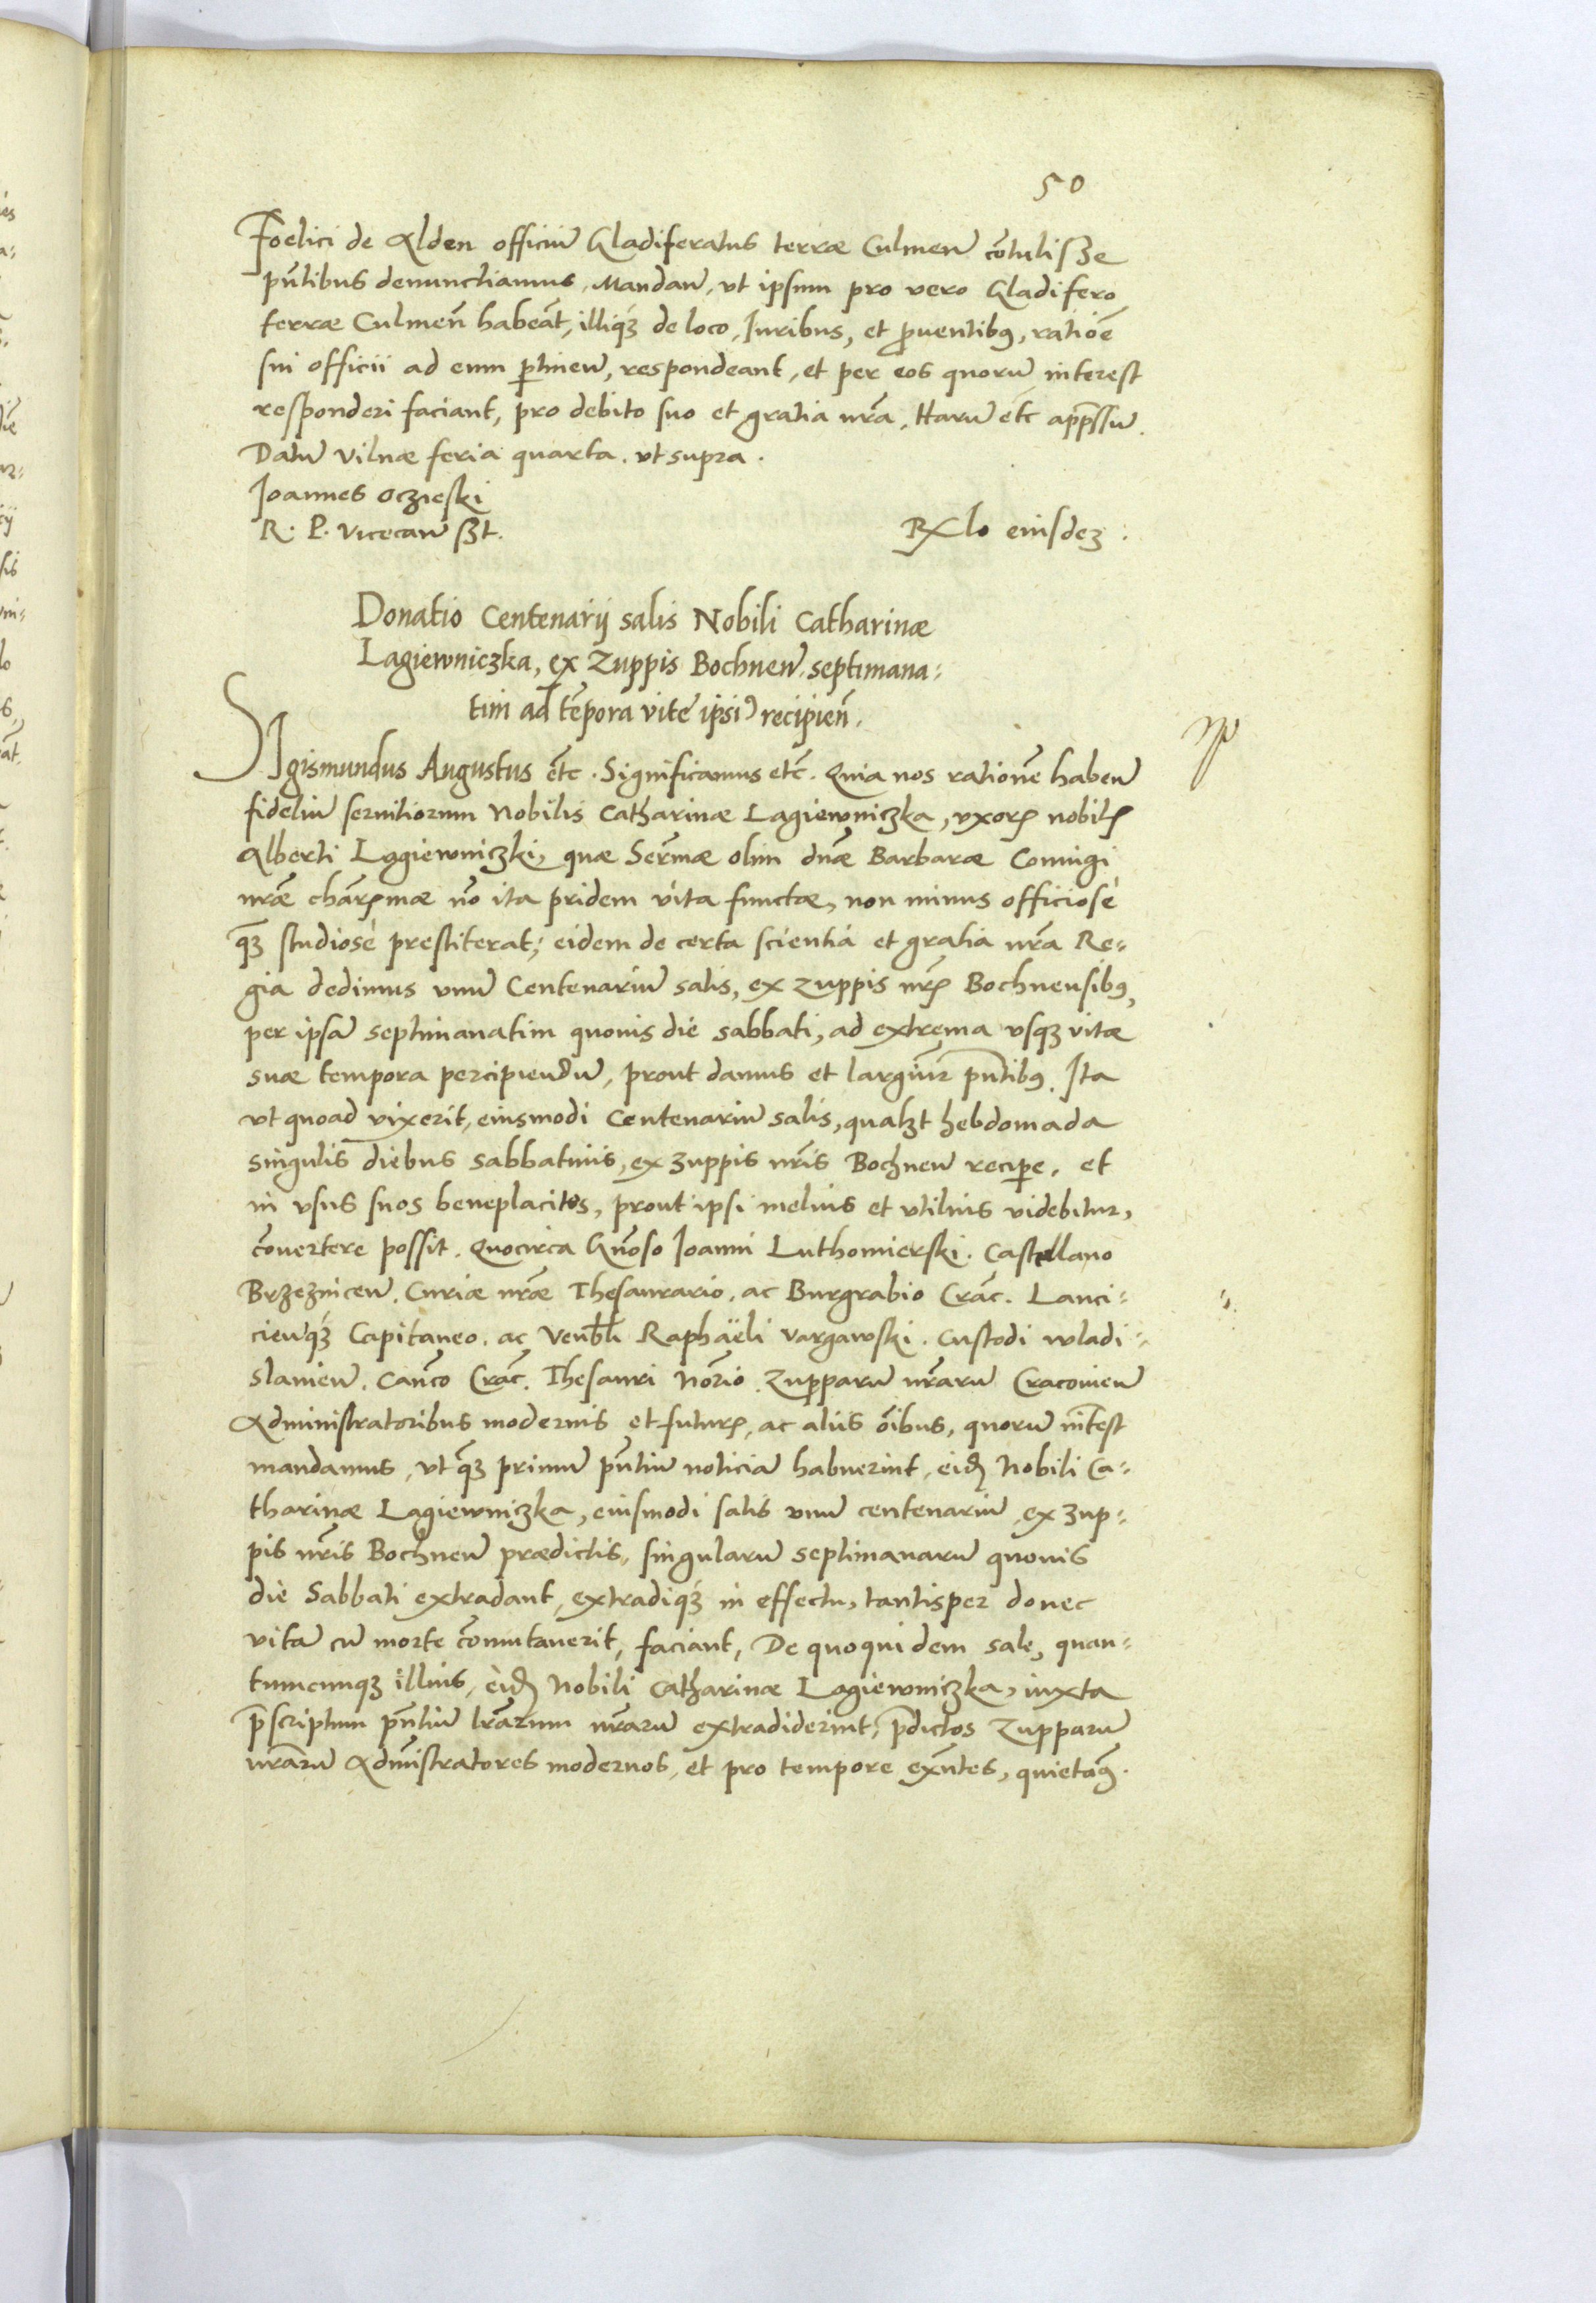 50
Foelici de Alden officiũ Gladiferatus terræ Culmeñ cõtulisse
pñtibus denunctiamus, Mandañ, vt ipsum pro vero Gladifero
terræ Culmeñ habeãt, illiqꝫ de loco, Iuribus, et ꝓuentibꝰ, ratiõe
sui officii ad eum ꝑtineñ, respondeant, et per eos quorũ interest
responderi faciant, pro debito suo et gratia nrã, Harũ etc appssũ.
Datũ Vilnæ feria quarta. vt supra.
Ioannes Oczieski
R. P. Vicecañ sszt.
Rlo eiusdeꝫ.
Donatio Centenarij salis Nobili Catharinæ
Lagiewniczka, ex Zuppis Bochneñ septimana⸗
tim ad tẽpora vite ipsiꝰ recipieñ.
SIgismundus Augustus etc̃. Significamus etc̃. Quia nos rationẽ habeñ
fideliũ seruitiorum Nobilis Catharinæ Lagiewniczka, vxorꝭ nobilꝭ
Alberti Lagiewniczki, quæ Serm̃æ olim dnæ̃ Barbaræ Coniugi
nræ̃ charꝭmæ nõ ita pridem vita functæ, non minus officiosè
qꝫ̃ studiosè prestiterat; eidem de certa scientia et gratia nrã Re⸗
gia dedimus vnũ Centenariũ salis, ex zuppis nrꝭ Bochnensibꝰ,
per ipsã septimanatim quouis die sabbati, ad extrema vsqꝫ vitæ
suæ tempora percipiendũ, prout damus et largimr̃ pñtibꝰ. Ita
vt quoad vixerit, eiusmodi Centenariũ salis, qualꝫt hebdomada
singulis diebus sabbatinis, ex zuppis nrĩs Bochneñ reciꝑe, et
in vsus suos beneplacitos, prout ipsi melius et vtilius videbitur,
cõuertere possit. Quocirca Gñoso Ioanni Luthomierski. Castellano
Brzezniceñ. Curiæ nræ̃ Thesaurario, ac Burgrabio Crac̃. Lanci⸗
cieñqꝫ Capitaneo. ac Venbĩli Raphäeli Vargawski. Custodi wladi⸗
slauieñ. Cañco Crac̃. Thesauri Nõrio. Zupparũ nrãrũ Cracouieñ
Administratoribus modernis et futurꝭ, ac aliis õibus, quorũ intẽst
mandamus, vt qꝫ̃ primũ pñtiũ noticiã habuerint, eidꝫ Nobili Ca⸗
tharinæ Lagiewniczka, eiusmodi salis vnũ centenariũ, ex zup⸗
pis nrĩs Bochneñ prædictis, singularũ septimanarũ quouis
die Sabbati extradant, extradiqꝫ in effectu, tantisper donec
vitã cũ morte cõmutauerit, faciant, De quoquidem sale, quan⸗
tumcunqꝫ illius, eidꝫ Nobili Catharinæ Lagiewniczka, iuxta
p̃scriptum pñtiũ lrãrum nrãrũ extradiderint, p̃dictos Zupparũ
nrãrũ Admĩstratores modernos, et pro tempore exñtes, quietamꝰ.